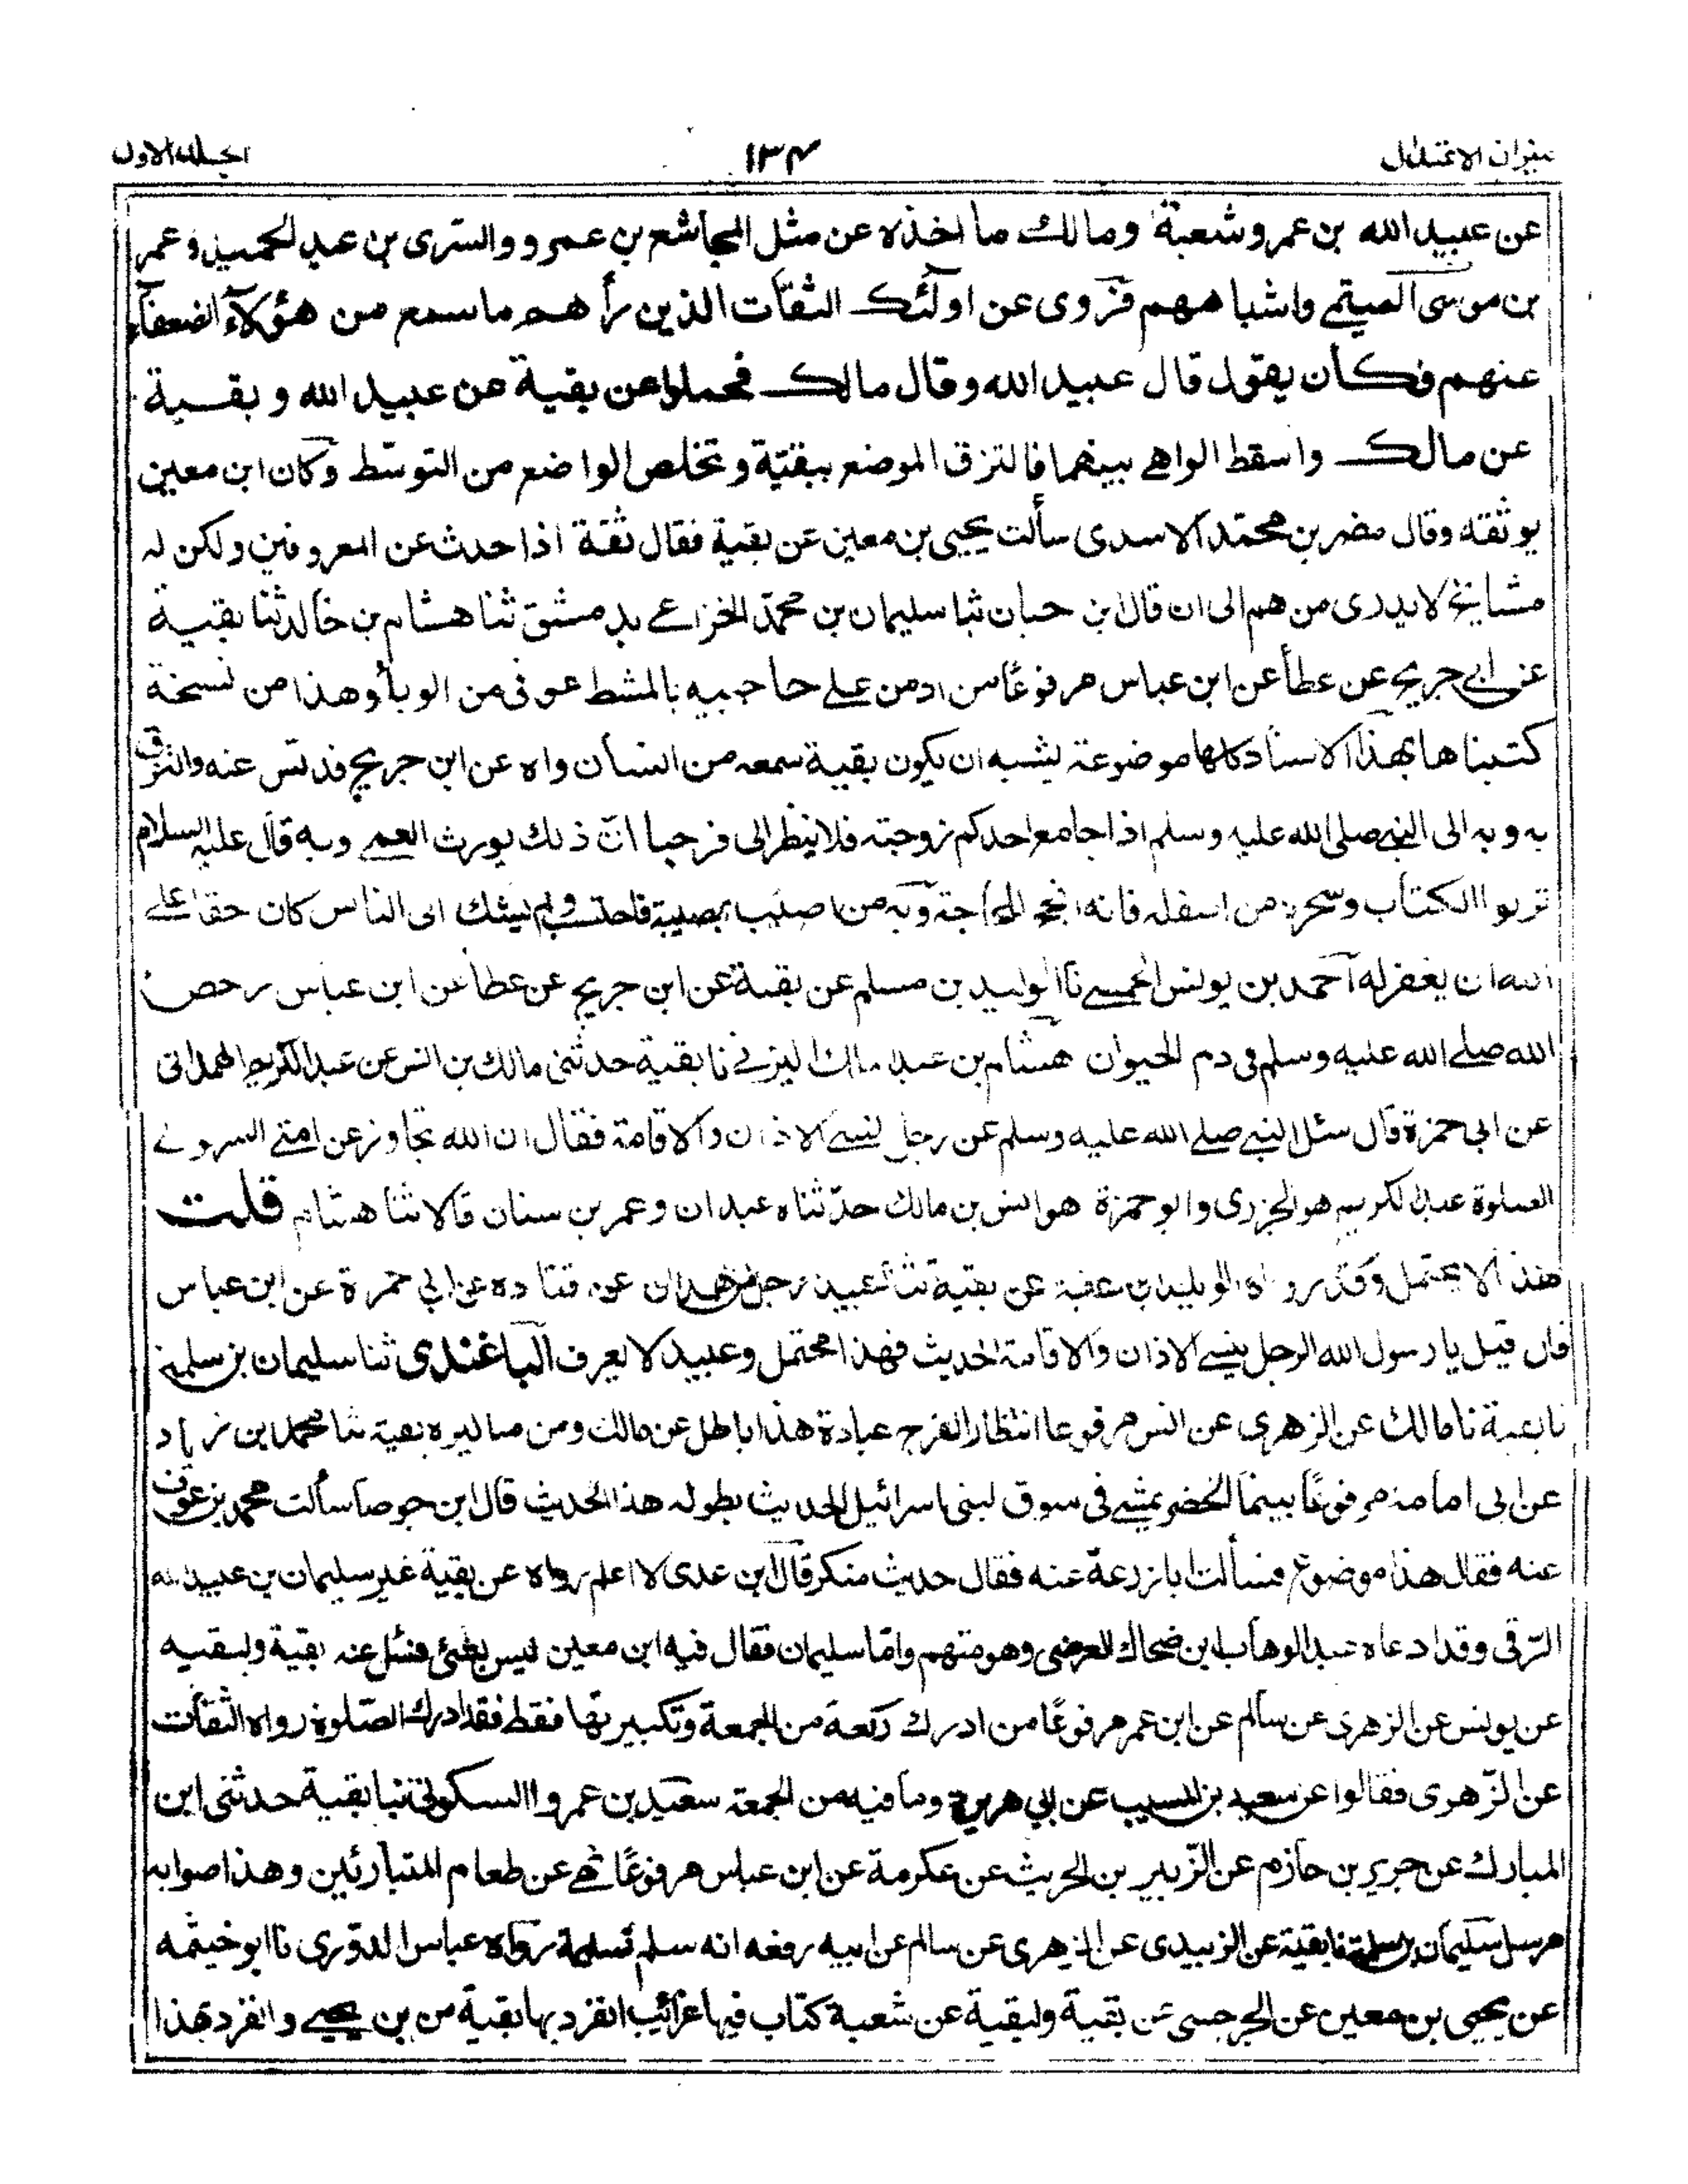 ميزان الاعتدال ١٣٤ الجلد الاول
عن عبيد الله بن عمر وشعبة ومالك ما اخذه عن مثل المجاشع بن عمرو والسرى بن عبد الحميد وعمر
بن موسى الميتمى واشباههم فروى عن اولئك الثقات الذين رأهم ما سمع من هؤلاء الضعفاء
عنهم فكان يقول قال عبيد الله وقال مالك فحملوا عن بقية عن عبيد الله وبقية
عن مالك واسقط الواهى بينهما فالتزق الموضع ببقيّة وتخلص الواضع من التوسّط وكان ابن معين
يوثقه وقال مضر بن محمّد الاسدى سألت يحيى بن معين عن بقية فقال ثقة اذا حدث عن المعروفين ولكن له
مشايخ لا يدرى من هم الى ان قال ابن حبان ثنا سليمان بن محمّد الخزاعى بدمشق ثنا هشام بن خالد ثنا بقية
عن ابى جريج عن عطأ عن ابن عباس مرفوعًا من ادمن على حاجبيه بالمشط عوفى من الوبأ وهذا من نسخة
كتبناها بهذا الاسناد كلها موضوعة يشبه ان يكون بقية سمعه من انسان واه عن ابن جريج فدلّس عنه والتزق
به وبه الى النبى صلى الله عليه وسلم اذا جامع احدكم زوجته فلا ينظر الى فرجها انّ ذلك يورث العمى وبه قال عليه السلام
تربوا الكتاب وسحره من اسفله فانه انجح للحاجة وبه من اصيب بمصيبة فاحتسب ولم يشك الى الناس كان حقا على
الله ان يغفر له احمد بن يونس الحمصى نا الوليد بن مسلم عن بقية عن ابن جريج عن عطا عن ابن عباس رخص
الله صلى الله عليه وسلم فى دم الحيوان هشام بن عبد مالك اليزنى نا بقية حدثنى مالك بن انس عن عبد الكريم الهمدانى
عن ابى حمزة قال سئل النبى صلى الله عليه وسلم عن رجل نسى الاذان والاقامة فقال ان الله تجاوز عن امتى السهو فى
الصلوة عبد الكريم هو الجزرى وابو حمزة هو انس بن مالك حدّثناه عبدان وعمر بن سنان قالا ثنا هشام قلت
هذا لا يحتمل وقد رواه الوليد بن عقبة عن بقية ثنا عبيد رجل من همدان عن قتاده عن ابى حمزة عن ابن عباس
قال قيل يا رسول الله الرجل ينسى الاذان والاقامة الحديث فهذا محتمل وعبيد لا يعرف الباغندى ثنا سليمان بن سلمة
نا بقية نا مالك عن الزهرى عن انس مرفوعا انتظار الفرج عبادة هذا باطل عن مالك ومن مناكيره بقية ثنا محمد بن زياد
عن ابى امامة مرفوعًا بينما الخضر يمشى فى سوق لبنى اسرائيل الحديث بطوله هذا الحديث قال ابن جوصا سألت محمد بن عوف
عنه فقال هذا موضوع فسألت ابا زرعة عنه فقال حديث منكر قال ابن عدى لا اعلم رواه عن بقية غير سليمان بن عبيد الله
الرّقى وقد ادعاه عبد الوهاب ابن ضحاك العرضى وهو متهم وامّا سليمان فقال فيه ابن معين ليس بشئ فسئل عنه بقية ولبقيه
عن يونس عن الزهرى عن سالم عن ابن عمر مرفوعًا من ادرك ركعة من الجمعة وتكبيرتها فقط فقد ادرك الصّلوة رواه الثقات
عن الزّهرى فقالوا عن سعيد بن المسيب عن ابى هريرة وما فيه من الجمعة سعيد بن عمرو السكونى ثنا بقية حدثنى ابن
المبارك عن جرير بن حازم عن الزّبير بن الحريث عن عكرمة عن ابن عباس مرفوعًا نهى عن طعام المتبارئين وهذا صوابه
مرسل سليمان بن سلمة نا بقية عن الزبيدى عن الزهرى عن سالم عن ابيه رفعه انه سلم تسليمة رواه عباس الدّورى نا ابو خيثمه
عن يحيى بن معين عن الجرجسى عن بقية ولبقية عن شعبة كتاب فيها غرائب انفرد بها بقية من بن يحيى وانفرد بهذا